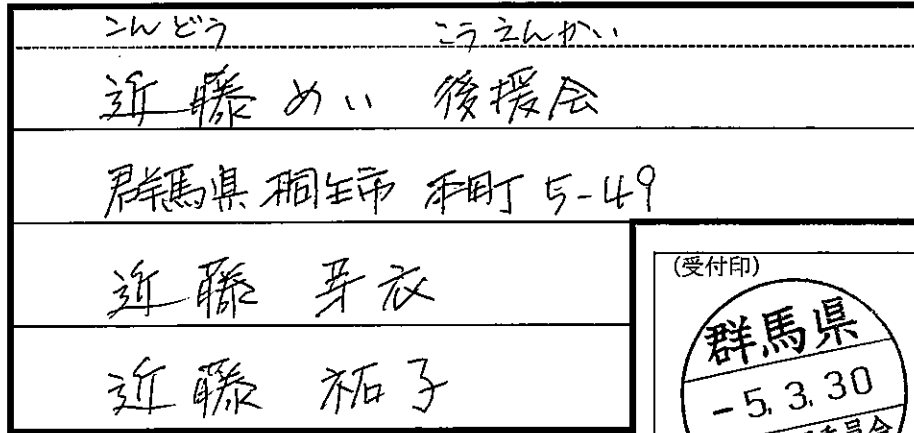 こんどう こうえんかい
近藤めい 後援会
群馬県桐生市本町5-49
近藤 芽衣
近藤 祐子
(受付印)
群馬県
-5.3.30
委員会